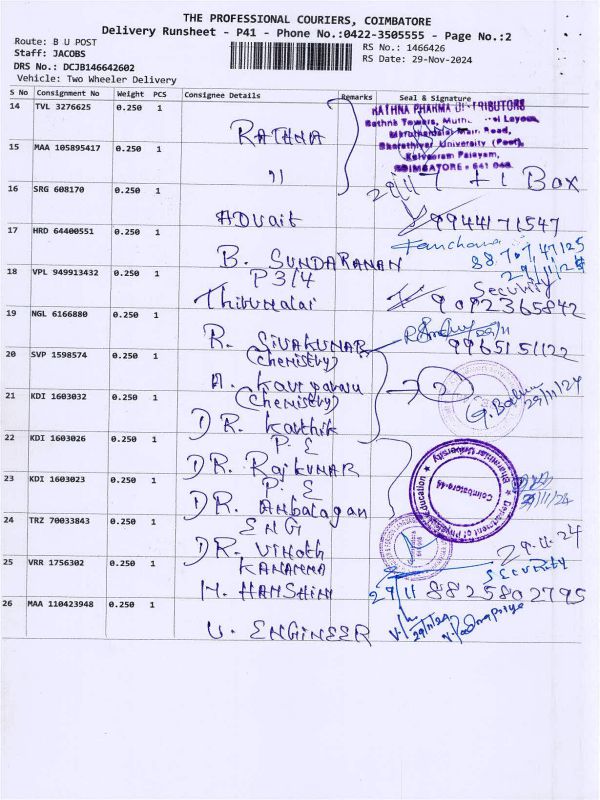 THE PROFESSIONAL COURIERS, COIMBATORE
Delivery Runsheet - P41 - Phone No.:0422-3505555 - Page No.:2
Route: B U POST
Staff: JACOBS
DRS No.: DCJB146642602
Vehicle: Two Wheeler Delivery
RS No.: 1466426
RS Date: 29-Nov-2024
S No Consignment No Weight PCS Consignee Details Remarks Seal & Signature
14 TVL 3276625 0.250 1 RATHNA
RATHNA PHARMA DISTRIBUTORS
Rathna Towers,
Maruthamalai Main Road,
Bharathiyar University (Post),
Kalveeram Palayam,
COIMBATORE - 641 046.
15 MAA 105895417 0.250 1 "
29/11 7 + 1 Box
16 SRG 608170 0.250 1 ADVait 9944171547
17 HRD 64400551 0.250 1 B. SUNDARANAN
29/11/24
18 VPL 949913432 0.250 1 P 3/4
Thirumalai
Security
9092365842
19 NGL 6166880 0.250 1 R. SIVAKUMAR 9965151122
20 SVP 1598574 0.250 1 (Chemistry)
21 KDI 1603032 0.250 1 (Chemistry)
DR. Karthik
2
29/11/24
22 KDI 1603026 0.250 1 P. E
DR. Rajkumar
23 KDI 1603023 0.250 1 P. E
DR. Ambalagan
Bharathiar University
Department of Physical Education
Coimbatore-46
29/11/24
24 TRZ 70033843 0.250 1 ENG
DR. Vinoth
29.11.24
25 VRR 1756302 0.250 1 KANAMMA
H. HAMSHINI
SECURITY
29/11 8825802795
26 MAA 110423948 0.250 1 U. ENGINEER
29/11/24